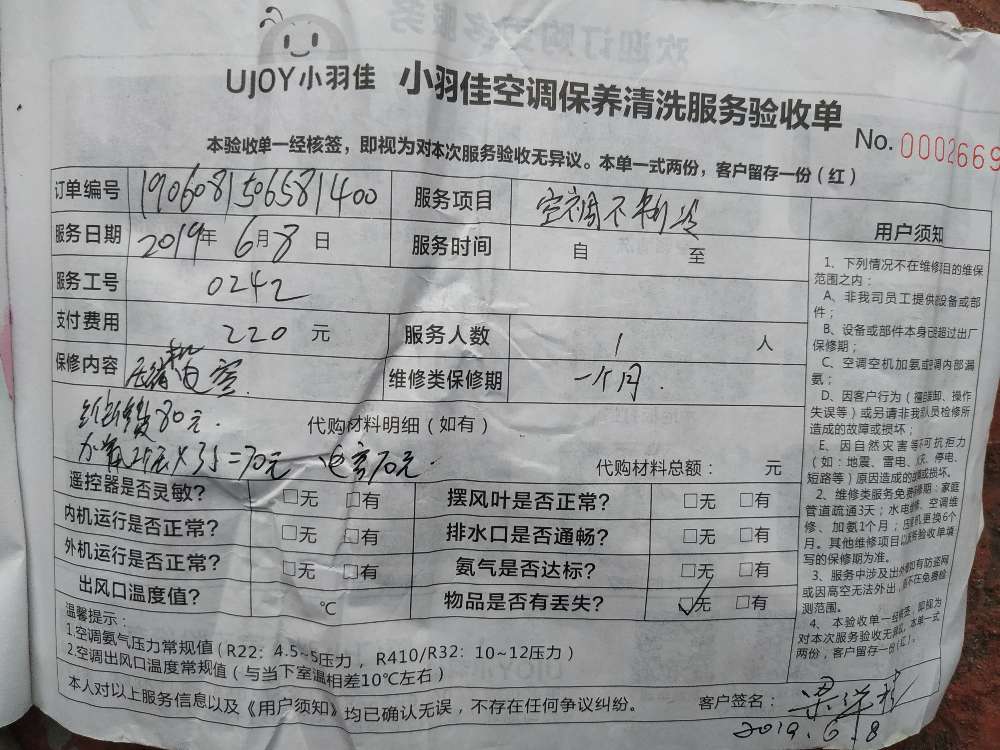 UJOY小羽佳 小羽佳空调保养清洗服务验收单
No. 0002669
本验收单一经核签，即视为对本次服务验收无异议。本单一式两份，客户留存一份（红）
订单编号 1906081506581400 服务项目 空调不制冷
服务日期 2019年6月8日 服务时间 自 至
服务工号 0242
支付费用 220 元 服务人数 1 人
保修内容 压缩机电容 维修类保修期 一个月.
维修费80元. 代购材料明细（如有）
=70元 电容70元. 代购材料总额： 元
遥控器是否灵敏? □无 □有 摆风叶是否正常? □无 □有
内机运行是否正常? □无 □有 排水口是否通畅? □无 □有
外机运行是否正常? □无 □有 氨气是否达标? □无 □有
出风口温度值? ℃ 物品是否有丢失? ☑无 □有
温馨提示：
1.空调氨气压力常规值（R22：4.5~5压力，R410/R32：10~12压力）
2.空调出风口温度常规值（与当下室温相差10℃左右）
本人对以上服务信息以及《用户须知》均已确认无误，不存在任何争议纠纷。
客户签名：
2019.6.8
用户须知
1、下列情况不在维修项目的维保
范围之内：
A、非我司员工提供设备或部
件；
B、设备或部件本身已超过出厂
保修期；
C、空调空机加氨或调内部漏
氨；
D、因客户行为（擅自拆卸、操作
失误等）或另请非我队员检修所
造成的故障或损坏；
E、因自然灾害等不可抗拒力
（如：地震、雷电、火灾、停电、
短路等）原因造成的故障或损坏。
2、维修类服务免费保修期：家庭
管道疏通3天；水电维修、空调维
修、加氨1个月；压缩机更换6个
月。其他维修项目以服务验收单填
写的保修期为准。
3、服务中涉及出外墙如有防盗网
或因高空无法外出，不在免费检
测范围。
4、本验收单一经核签，即视为
对本次服务验收无异议。本单一式
两份，客户留存一份（红）。